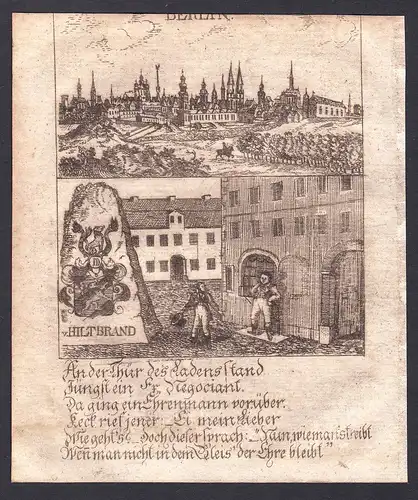 BERLIN.
v. HILTBRAND
An der Thür des Ladens stand
Jüngst ein Fr. Negociant.
Da ging ein Ehrenmann vorüber.
Keck rief jener: Ei mein Lieber
Wie geht's? doch dieser sprach: Nun, wie man's treibt
Wen̄ man nicht in dem Gleis' der Ehre bleibt."